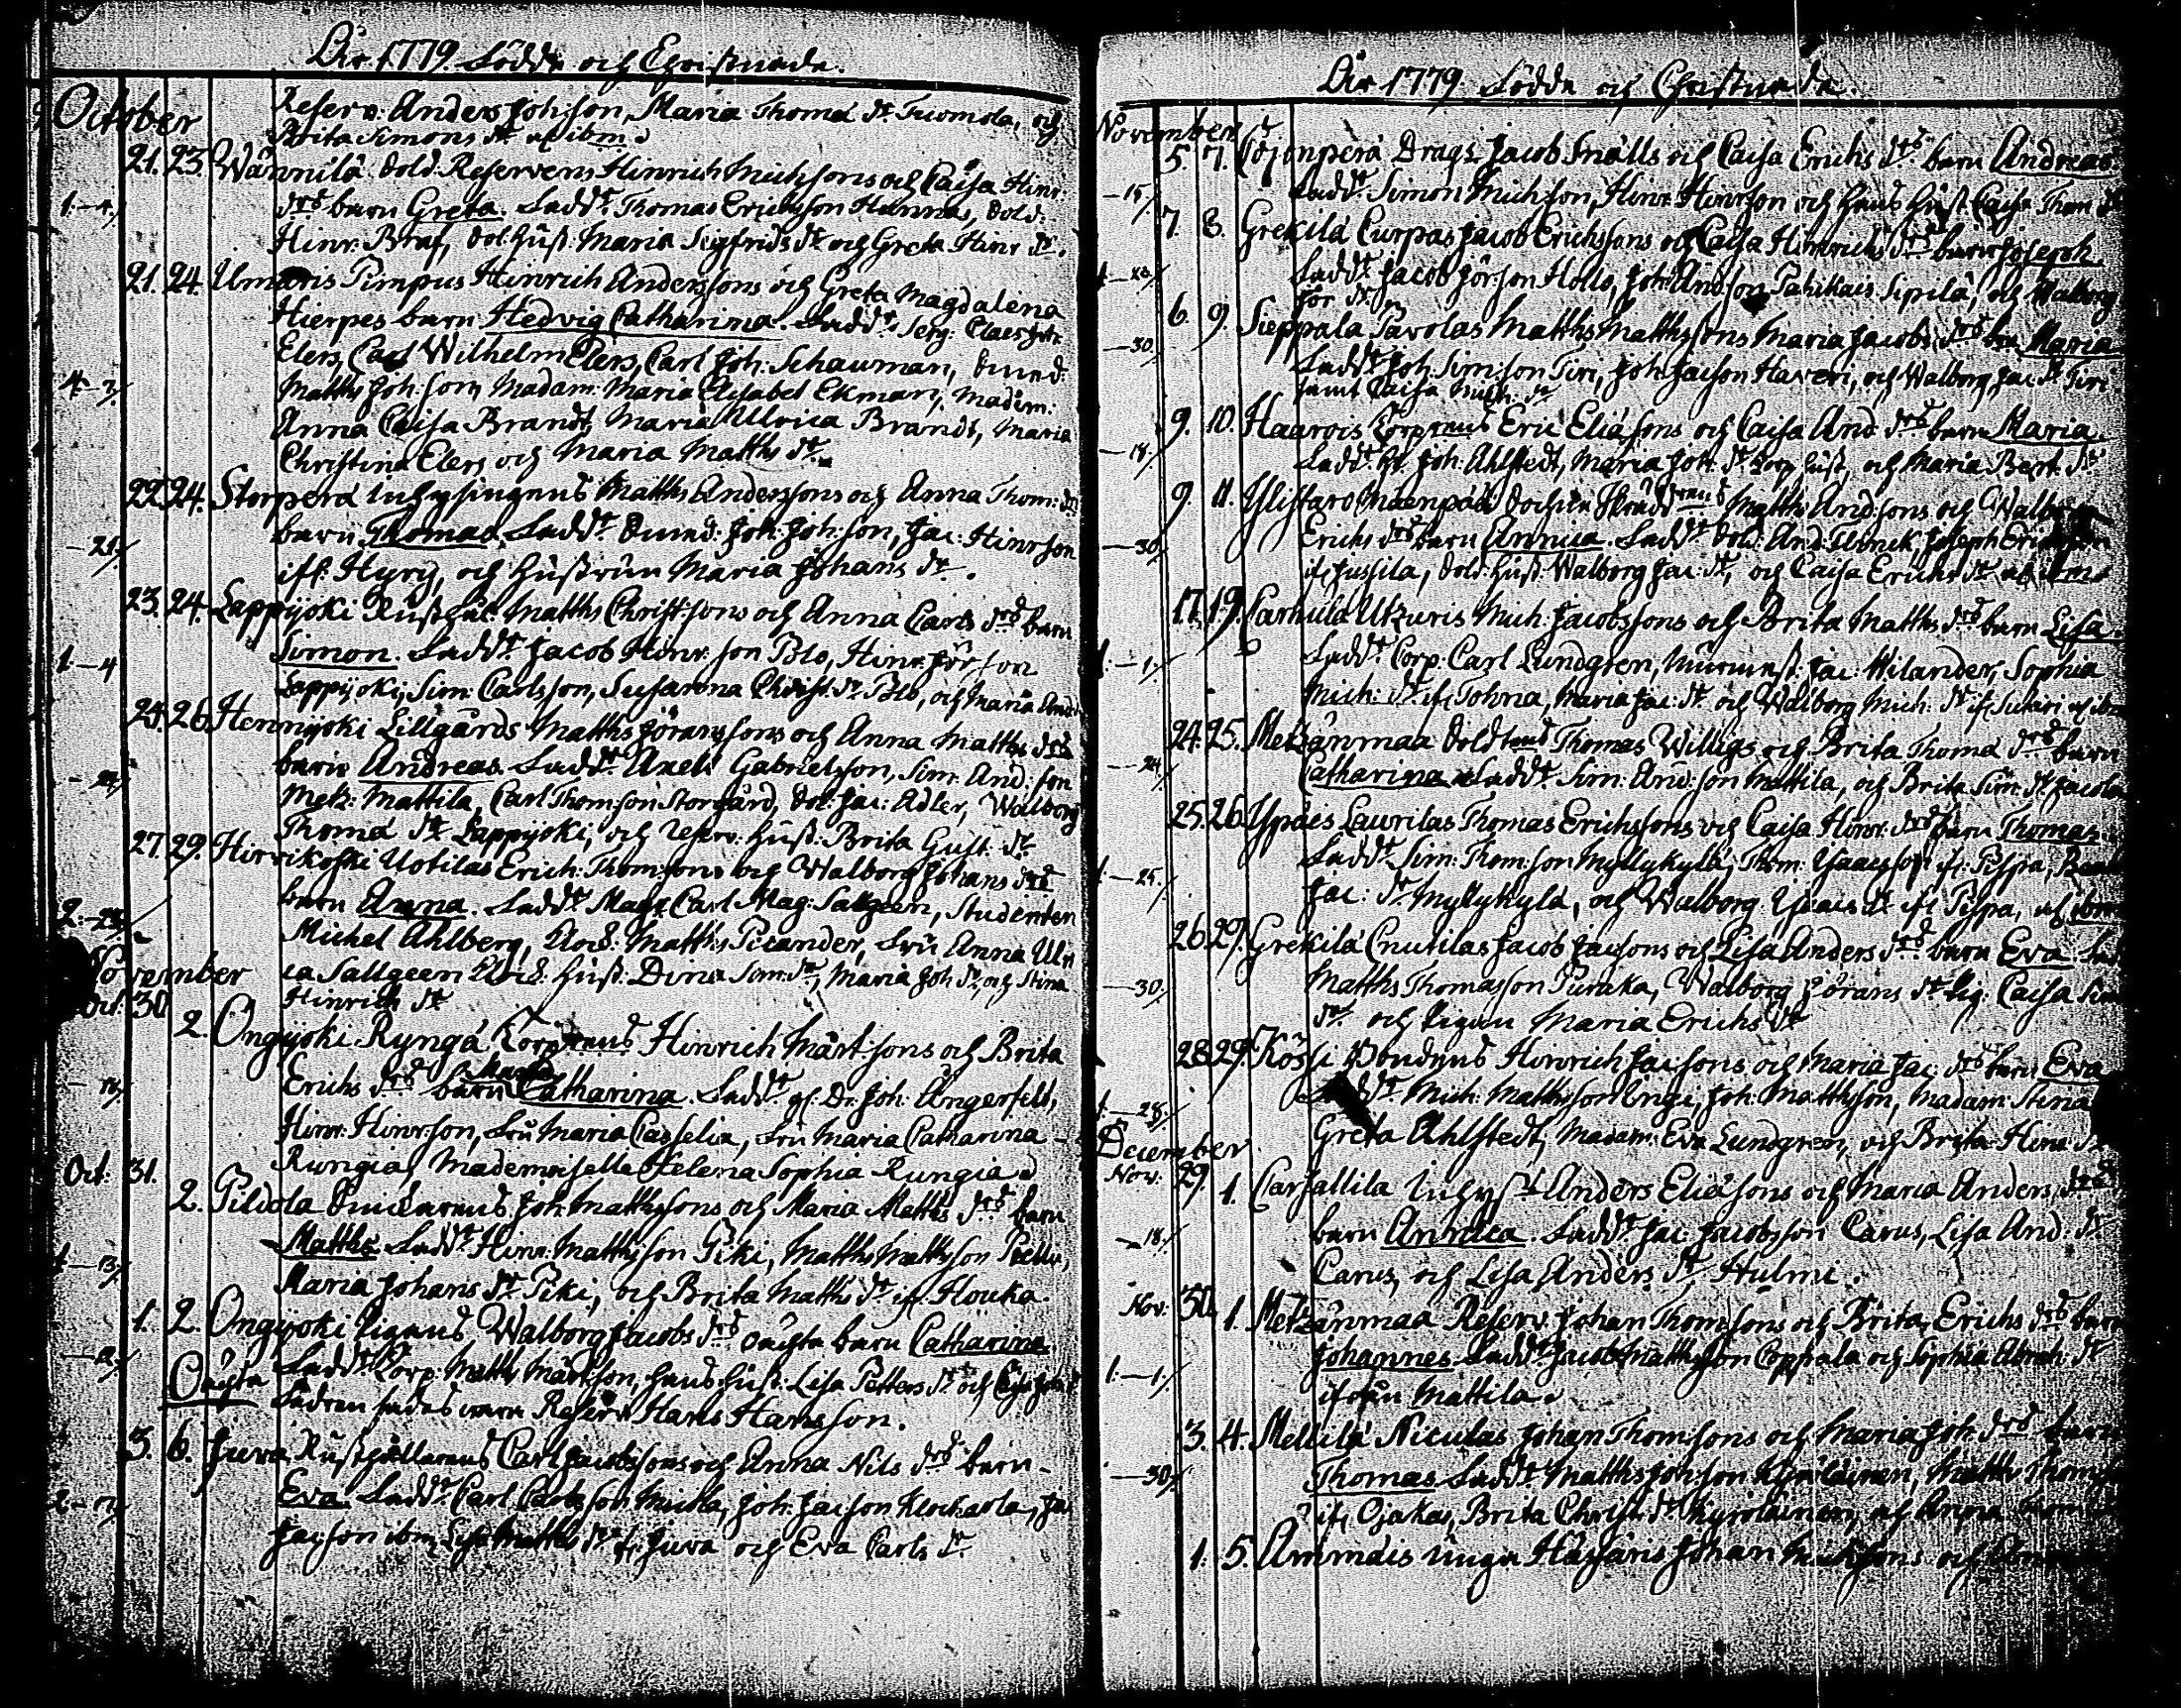 År 1779. Födde och Christnade.
October
Reserv: Anders Joh:son, Maria Thomæ dr Tuomola, och
Brita Simons dr af ibm.
21. 23. Wännilä dold. Reservens Hinrich Michsons och Caisa Hinr:
1.-4. drs barn Greta. Fadd:r Thomas Erichsson Hannus, dold:
Hinr: Braf, dol: hust: Maria Sigfrids dr och Greta Hinr dr.
21. 24. Ilmaris Pimpus Hinrich Anderssons och Greta Magdalena
Hierpes barn Hedvig Catharina. Fadd:r Serg: Claes
Elers, Carl Wilhelm Elers, Carl Joh: Schauman,
4-3. Matths Joh:son, Madam: Maria Elisabet Ekman, Madam:
Anna Caisa Brandt, Maria Ulrica Brandt, Maria
Christina Elers och Maria Matths dr.
22. 24. Storperä Inhysingens Matths Anderssons och Anna Thom: drs
barn Thomas. Fadd:r Joh: Joh:son, Jac: Hinrson
-21. ifr: Hyry, och hustrun Maria Johans dr.
23. 24. Lappijoki Rusth: Matths Christ:sons och Anna Carls drs barn
1.-4 Simon. Fadd:r Jacob Hinr:son Polo, Hinr: Jör:son
Lappijoki, Sim: Carlsson, Susanna Christ: dr Polo, och Maria
24. 26. Hennijoki Lillgårds Matths Jöranssons och Anna Matths drs
barn Andreas. Fadd:r Axel Gabrielsson, Sim: And:son
Metz: Mattila, Carl Thom:son Storgård, dol: Jac: Adler, Walborg
Thomæ dr Lappijoki, och reserv: hust: Brita Gust: dr.
27. 29. Hirvikoski Uotilas Erich: Thom:sons och Walborg Johans drs
2.-23. barn Anna. Fadd:r Mag: Carl Mag: Salgeen, Studenten
Michel Ahlberg, Matths Picander, Fru Anna Ulri
November
ca Sallgeen hust: Dina Sam: dr, Maria Joh dr, och Stina
Oct: 30. Hinrich dr
2. Ongijoki Rynga Torparens Hinrich Märt:sons och Brita
Erichs drs barn Maria Catharina. Fadd:r Joh: Ångerfelt,
Hinr: Hinr:son, Fru Maria Casselia, Fru Maria Catharina
Oct: 31. Rungia, Mademoiselle Helena Sophia Rungia.
2. Pildola Joh: Matthssons och Maria Matths drs barn
1-13. Matths. Fadd:r Hinr: Matthsson Piki, Matths Matthsson
Maria Johans dr Piki, och Brita Matths dr ifr: Houka.
1. 2. Ongijoki Pigans Walborg Jacobs drs oächta barn Catharina.
Oächta Fadd:r Torp: Matths Märtson, hans hust: Lisa Petters dr och
Fadren sades vara Reserv: Hans Hansson.
3. 6. Juva Rusthållarens Carl Jacobssons och Anna Nils drs barn
2-7. Eva. Fadd:r Carl Carlsson Mickla, Joh: Jacson Klockarla,
Jacson ibm, Lisa Matths dr fr: Juva och Eva Carls dr

År 1779. Födde och Christnade.
November
5. 7. Drags Jacob Snälls och Caisa Erichs drs barn Andreas
-15. Fadd:r Simon Mich:son, Hinr: Hinrson och hans hust: Caisa Thom: dr
7. 8. Grekilä Curpas Jacob Erichssons och Caisa Hinrichs drs barn Joseph
Fadd:r Jacob Jör:son Hollo, Joh: And:son Pahikais Sipilä, och Walborg
Jör dr.
6. 9. Sieppala Pavolas Matths Matthssons Maria Jacobs drs barn Maria
-30. Fadd:r Joh: Sim:son Tiri, Joh: Jacson Haveri, och Walborg Jac: dr Tiri
samt Caisa Mich: dr
9. 10. Haarois Torparens Eric Eliæsons och Caisa And drs barn Maria.
-18. Fadd:r Joh: Ahlstedt, Maria Joh: dr Torp: hust, och Maria Bert: dr
9. 11. Ylistaro Mäenpää Matths And:sons och Walborg
-30. Erichs drs barn Annica. Fadd:r dold: And: Joseph
ifr Jussila, dold: hust: Walborg Jac: dr, och Caisa Erichs dr af ibm
17. 19. Carhula Utzuris Mich: Jacobssons och Brita Matths drs barn Lisa.
1.-1. Fadd:r Corp: Carl Lundgren, Jac: Wilander, Sophia
Mich: dr ifr Tohna, Maria Jac: dr och Walborg Mich: dr ifr Sukari af ibm
24. 25. Metzänmaa Thomas Willigs och Brita Thomæ drs barn
-24. Catharina. Fadd:r Sim: And:son Mattila, och Brita Sim: dr Jacola
25. 26. Ypäis Laurilas Thomas Erichssons och Caisa Hinr: drs barn Thomas
1.-25. Fadd:r Sim: Thom:son Myllykylä, Thom: Isaacsson ifr: Pispa,
Jac: dr Myllykylä, och Walborg Isaacs dr ifr Pispa, af ibm
26. 29. Grekilä Cnutilas Jacob Jacsons och Lisa Anders drs barn Eva.
-30. Matths Thomasson Puraka, Walborg Jörans dr pig: Caisa
dr. och pigan Maria Erichs dr
28. 29. Kossi Bondens Hinrich Jacsons och Maria Jac: drs barn Eva
1.-28. Fadd:r Mich: Matthsson Engi, Joh: Matthsson, Madam: Stina
December
Greta Ahlstedt, Madam: Eva Lundgren, och Brita Hinr: dr
Nov: 29. 1. Carsattila Anders Eliæsons och Maria Anders drs
-18. barn Annica. Fadd:r Jac: Jacobsson Carus, Lisa And: dr
Carus, och Lisa Anders dr Hulmi.
Nov: 30. 1. Metzänmaa Reserv: Johan Thom:sons och Brita Erichs drs barn
1.-1. Johannes. Fadd:r Jacob Matthsson Coppala och Sophia Abrah: dr
ifrån Mattila.
3. 4. Mellilä Niculas Johan Thom:sons och Maria Joh: drs barn
-30. Thomas. Fadd:r Matths Joh:son Kyröläinen, Matths Thoms
ifr Ojakas, Brita Christ: dr Kyröläinen, och Anna
1. 5. Ammäis unga Häfäris Johan Michsons och